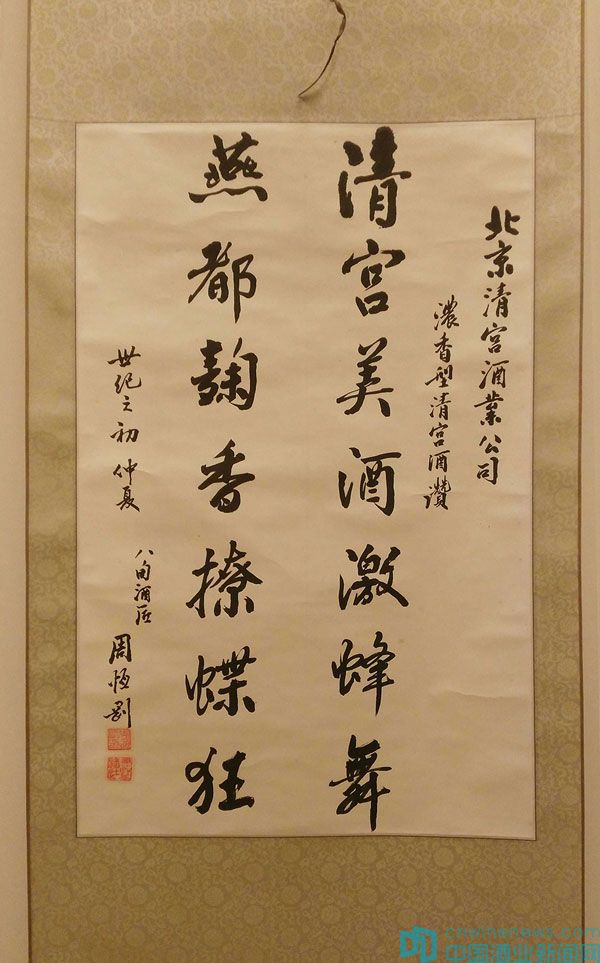 北京清宫酒業公司
濃香型清宫酒讚
清宫美酒激蜂舞
燕都麴香撩蝶狂
世纪之初 仲夏
八旬酒匠 周恒刚
cnwinenews.com
中国酒业新闻网